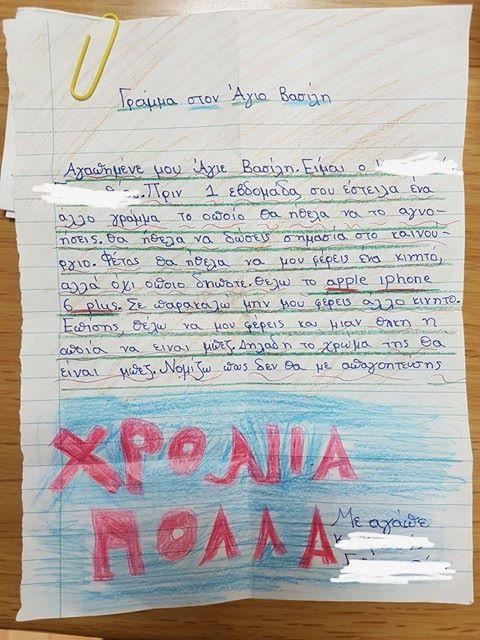 Γράμμα στον Άγιο Βασίλη
Αγαπημένε μου Άγιε Βασίλη. Είμαι ο
Πριν 1 εβδομάδα σου έστειλα ένα
άλλο γράμμα το οποίο θα ήθελα να το αγνο-
ήσεις. Θα ήθελα να δώσεις σημασία στο καινου-
ργιο. Φέτος θα ήθελα να μου φέρεις ένα κινητό,
αλλά όχι οποιο δήποτε. Θέλω το apple iphone
6 plus. Σε παρακαλώ μην μου φέρεις αλλο κινητο.
Επίσης, θέλω να μου φέρεις και μιαν θηκη η
οποία να ειναι μπεζ. Δηλαδή το χρωμα της θα
είναι μπεζ. Νομίζω πως δεν θα με απαγοητεύσης
ΧΡΟΝΙΑ
ΠΟΛΛΑ
Με αγάπε